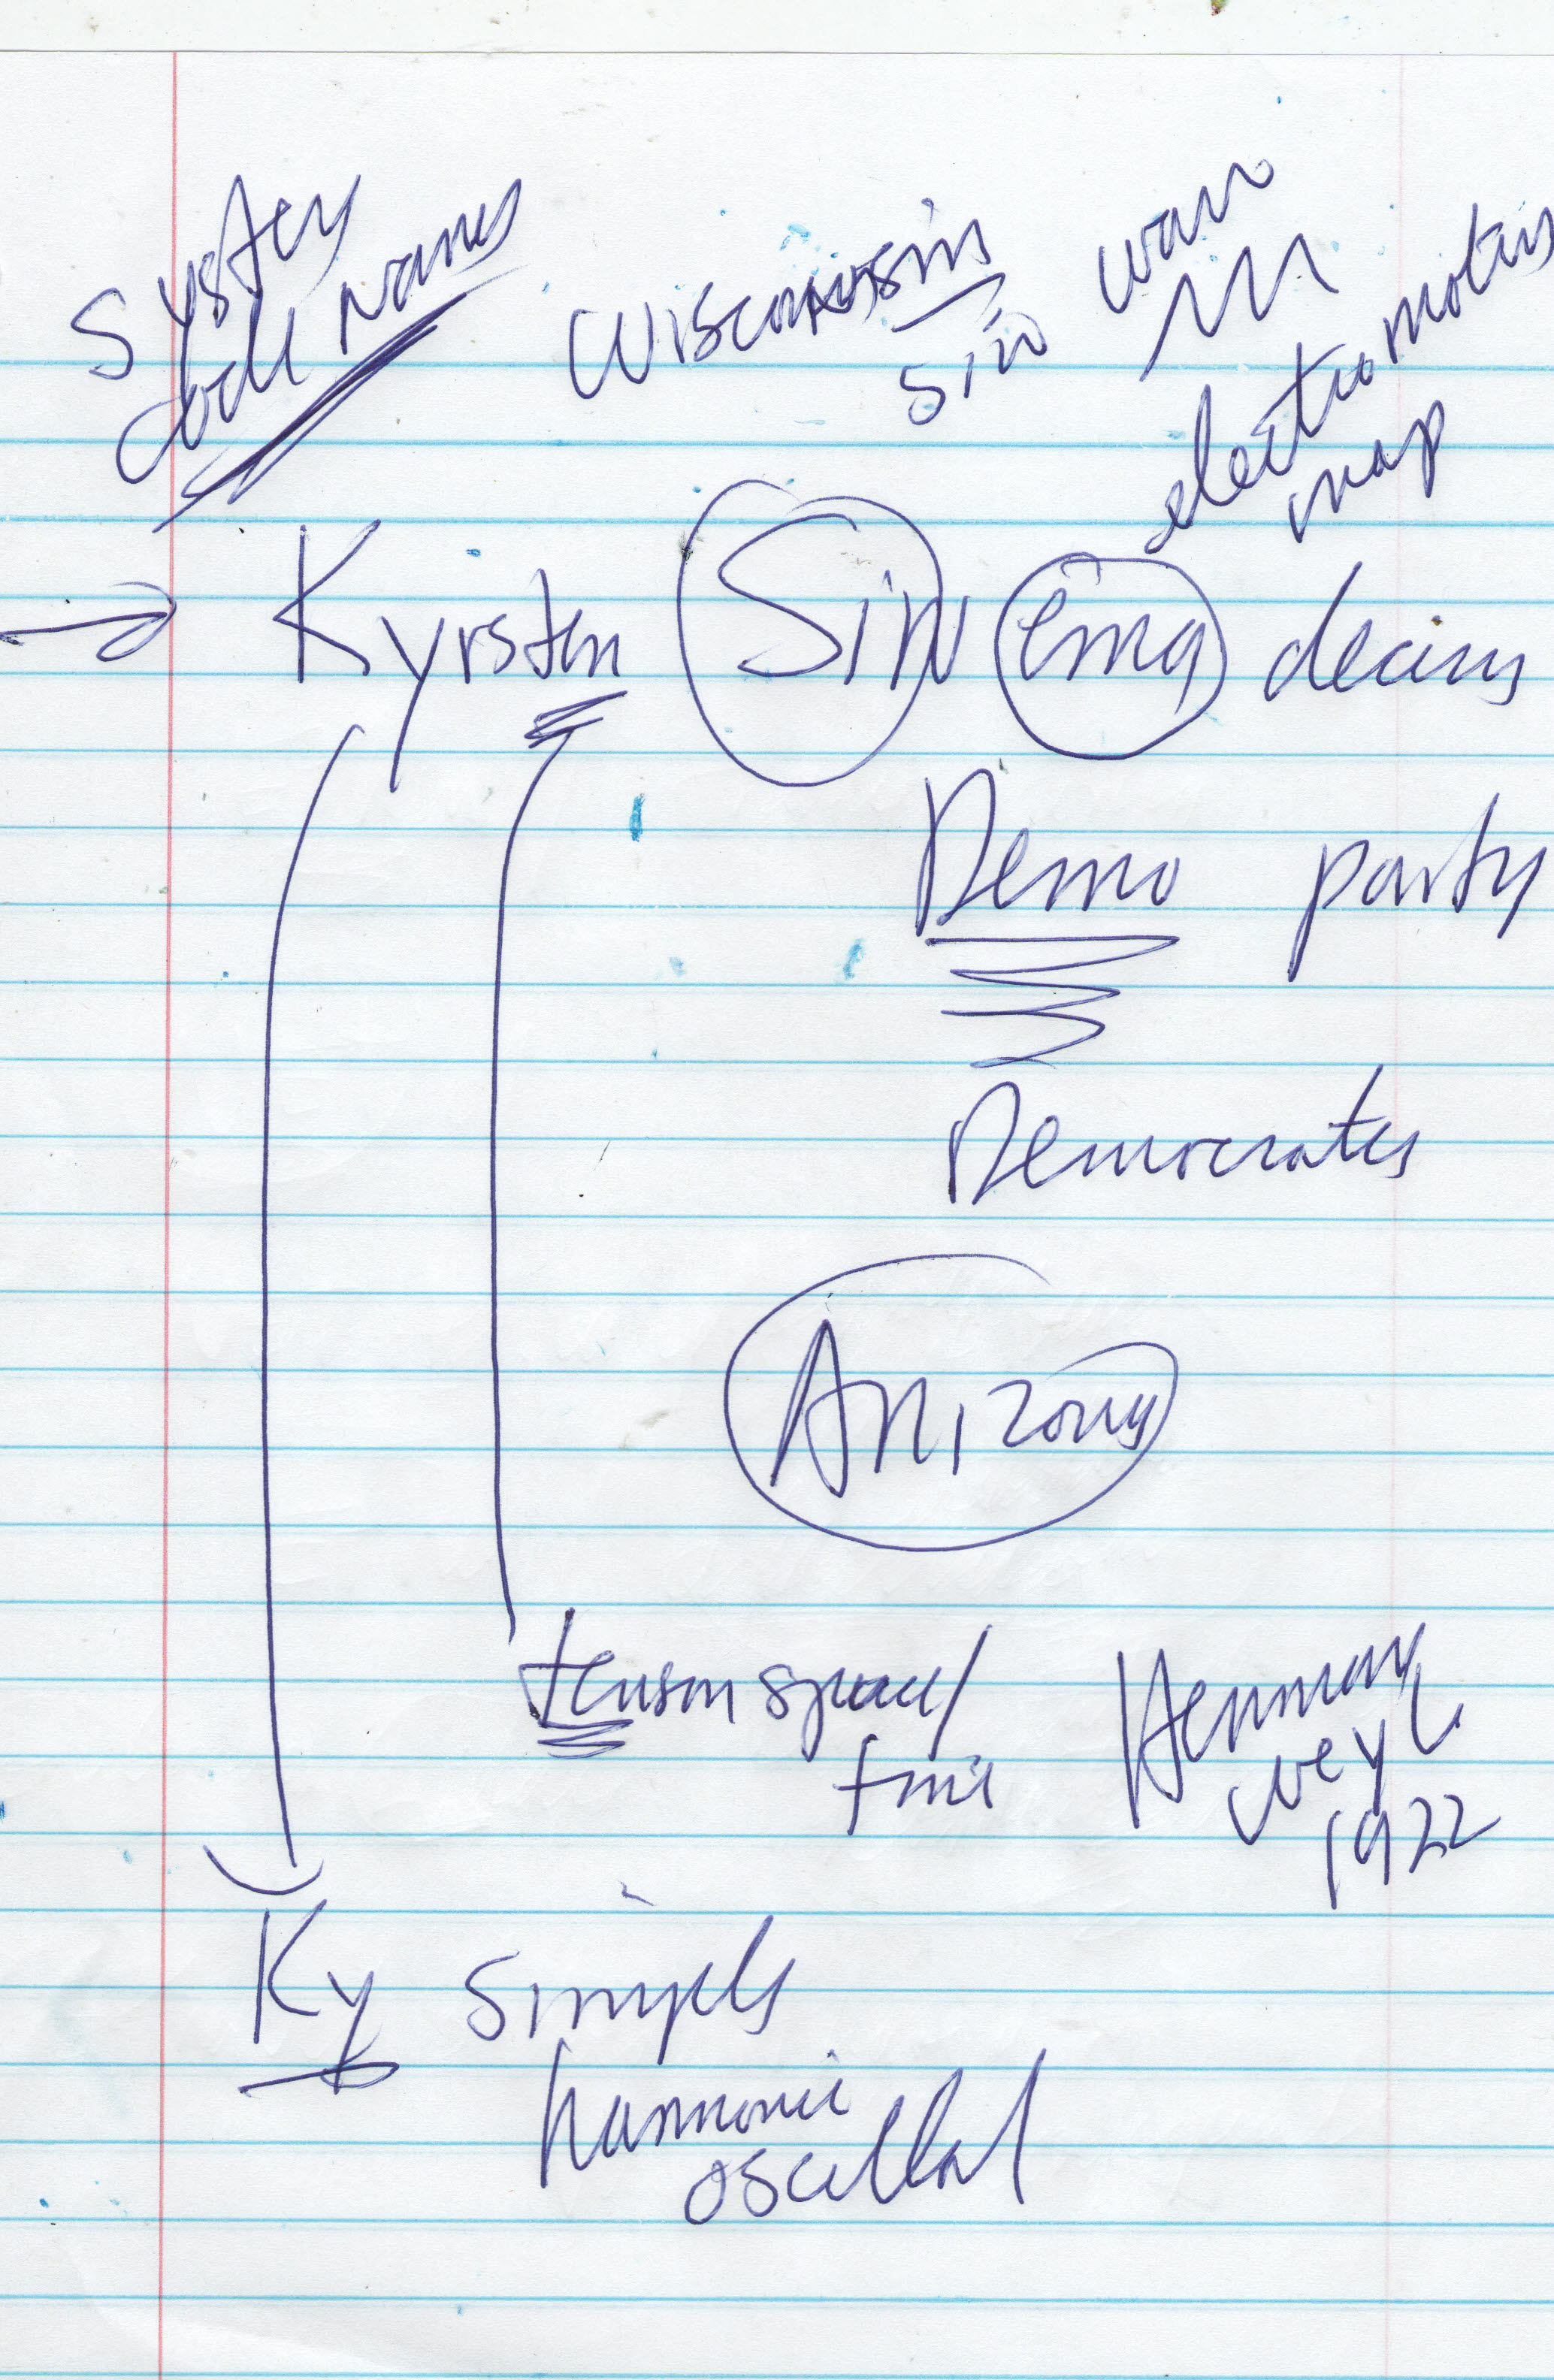 System
code names
Wisconsin
sin wave
electromotive
map
Kyrsten Sin ema
Demo party
Democrates
Arizona
tensor space/
time
Hermann
Weyl
1922
Ky simple
harmonic
oscillat